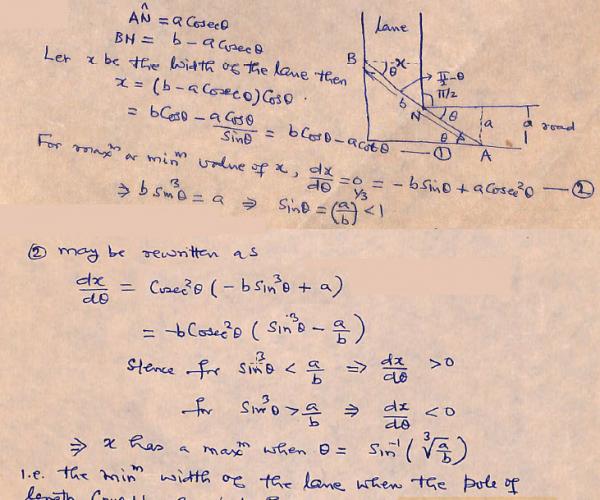 AN̂ = a Cosecθ
BN = b - a Cosecθ
Let x be the width of the lane then
x = (b - a Cosecθ) Cosθ.
= b Cosθ - a Cosθ/Sinθ = b Cosθ - a Cotθ — ①
For max^m or min^m value of x, dx/dθ = 0 = -b Sinθ + a Cosec²θ — ②
⇒ b Sin³θ = a ⇒ Sinθ = (a/b)^1/3 < 1
lane
B
θ
x
π/2 - θ
π/2
b
N
θ
a
a
road
θ
A
② may be rewritten as
dx/dθ = Cosec²θ (-b Sin³θ + a)
= -b Cosec²θ (Sin³θ - a/b)
Hence for Sin³θ < a/b ⇒ dx/dθ > 0
for Sin³θ > a/b ⇒ dx/dθ < 0
⇒ x has a max^m when θ = Sin⁻¹(∛a/b)
i.e. the min^m width of the lane when the pole of
length